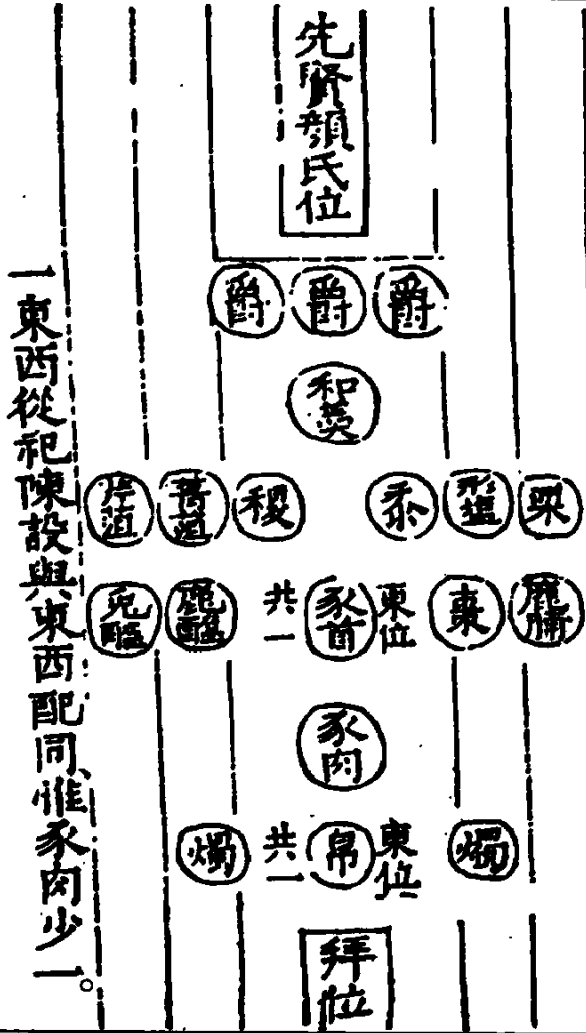 先賢顏氏位
爵 爵 爵
和羹
栗 形鹽 黍 稷 菁菹 芹菹
鹿脯 棗 東位 豕首 共一 鹿醢 兔醢
豕肉
燭 東位 帛 共一 燭
拜位
一東西從祀陳設與東西配同惟豕肉少一。